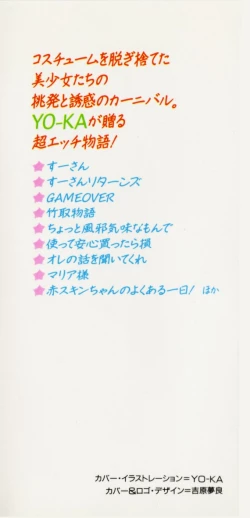 コスチュームを脱ぎ捨てた
美少女たちの
挑発と誘惑のカーニバル。
YO-KAが贈る
超エッチ物語!
★すーさん
★すーさんリターンズ
★GAMEOVER
★竹取物語
★ちょっと風邪気味なもんで
★使って安心買ったら損
★オレの話を聞いてくれ
★マリア様
★赤ズキンちゃんのよくある一日! ほか
カバー・イラストレーション=YO-KA
カバー&ロゴ・デザイン=吉原夢良